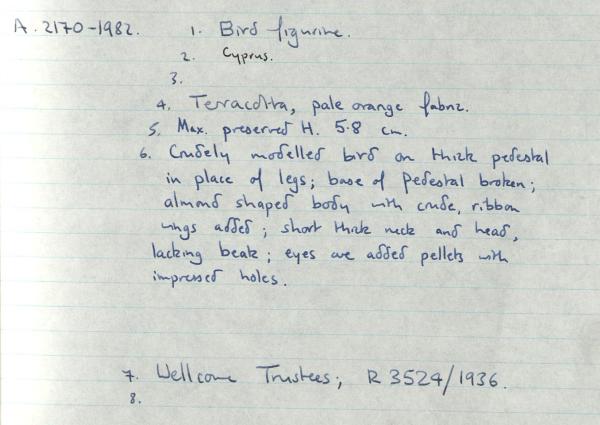 A.2170-1982. 1. Bird figurine.
2. Cyprus.
3.
4. Terracotta, pale orange fabric.
5. Max. preserved H. 5.8 cm.
6. Crudely modelled bird on thick pedestal
in place of legs; base of pedestal broken;
almond shaped body with crude, ribbon
wings added; short thick neck and head,
lacking beak; eyes are added pellets with
impressed holes.
7. Wellcome Trustees; R 3524/1936.
8.